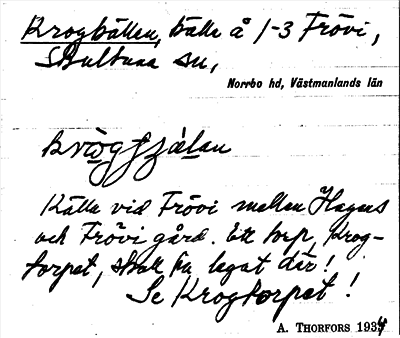 Krogkällen, källa å 1-3 Frövi,
Skultuna sn,
Norrbo hd, Västmanlands län
Källa vid Frövi mellan Hagens
och Frövi gård. Ett torp, Krog-
torpet, skall ha legat där!
Se Krogtorpet!
A. Thorfors 1934